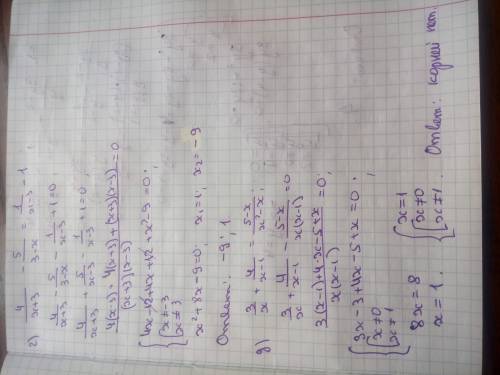 г) 4/(x+3) - 5/(3-x) = 1/(x-3) - 1 ;
4/(x+3) - 5/(3-x) - 1/(x-3) + 1 = 0 ;
4/(x+3) + 5/(x-3) - 1/(x-3) + 1 = 0 ;
(4(x-3) + 4(x+3) + (x+3)(x-3))/((x+3)(x-3)) = 0
{ 4x - 12 + 4x + 12 + x² - 9 = 0 ;
{ x ≠ -3
{ x ≠ 3
x² + 8x - 9 = 0 ; x₁ = 1 ; x₂ = -9
Ответ: -9 ; 1
д) 3/x + 4/(x-1) = (5-x)/(x²-x) ;
3/x + 4/(x-1) - (5-x)/(x(x-1)) = 0
(3(x-1) + 4x - 5 + x)/(x(x-1)) = 0 ;
{ 3x - 3 + 4x - 5 + x = 0 ;
{ x ≠ 0
{ x ≠ 1
8x = 8 { x = 1
x = 1 . { x ≠ 0
{ x ≠ 1 . Ответ: корней нет.